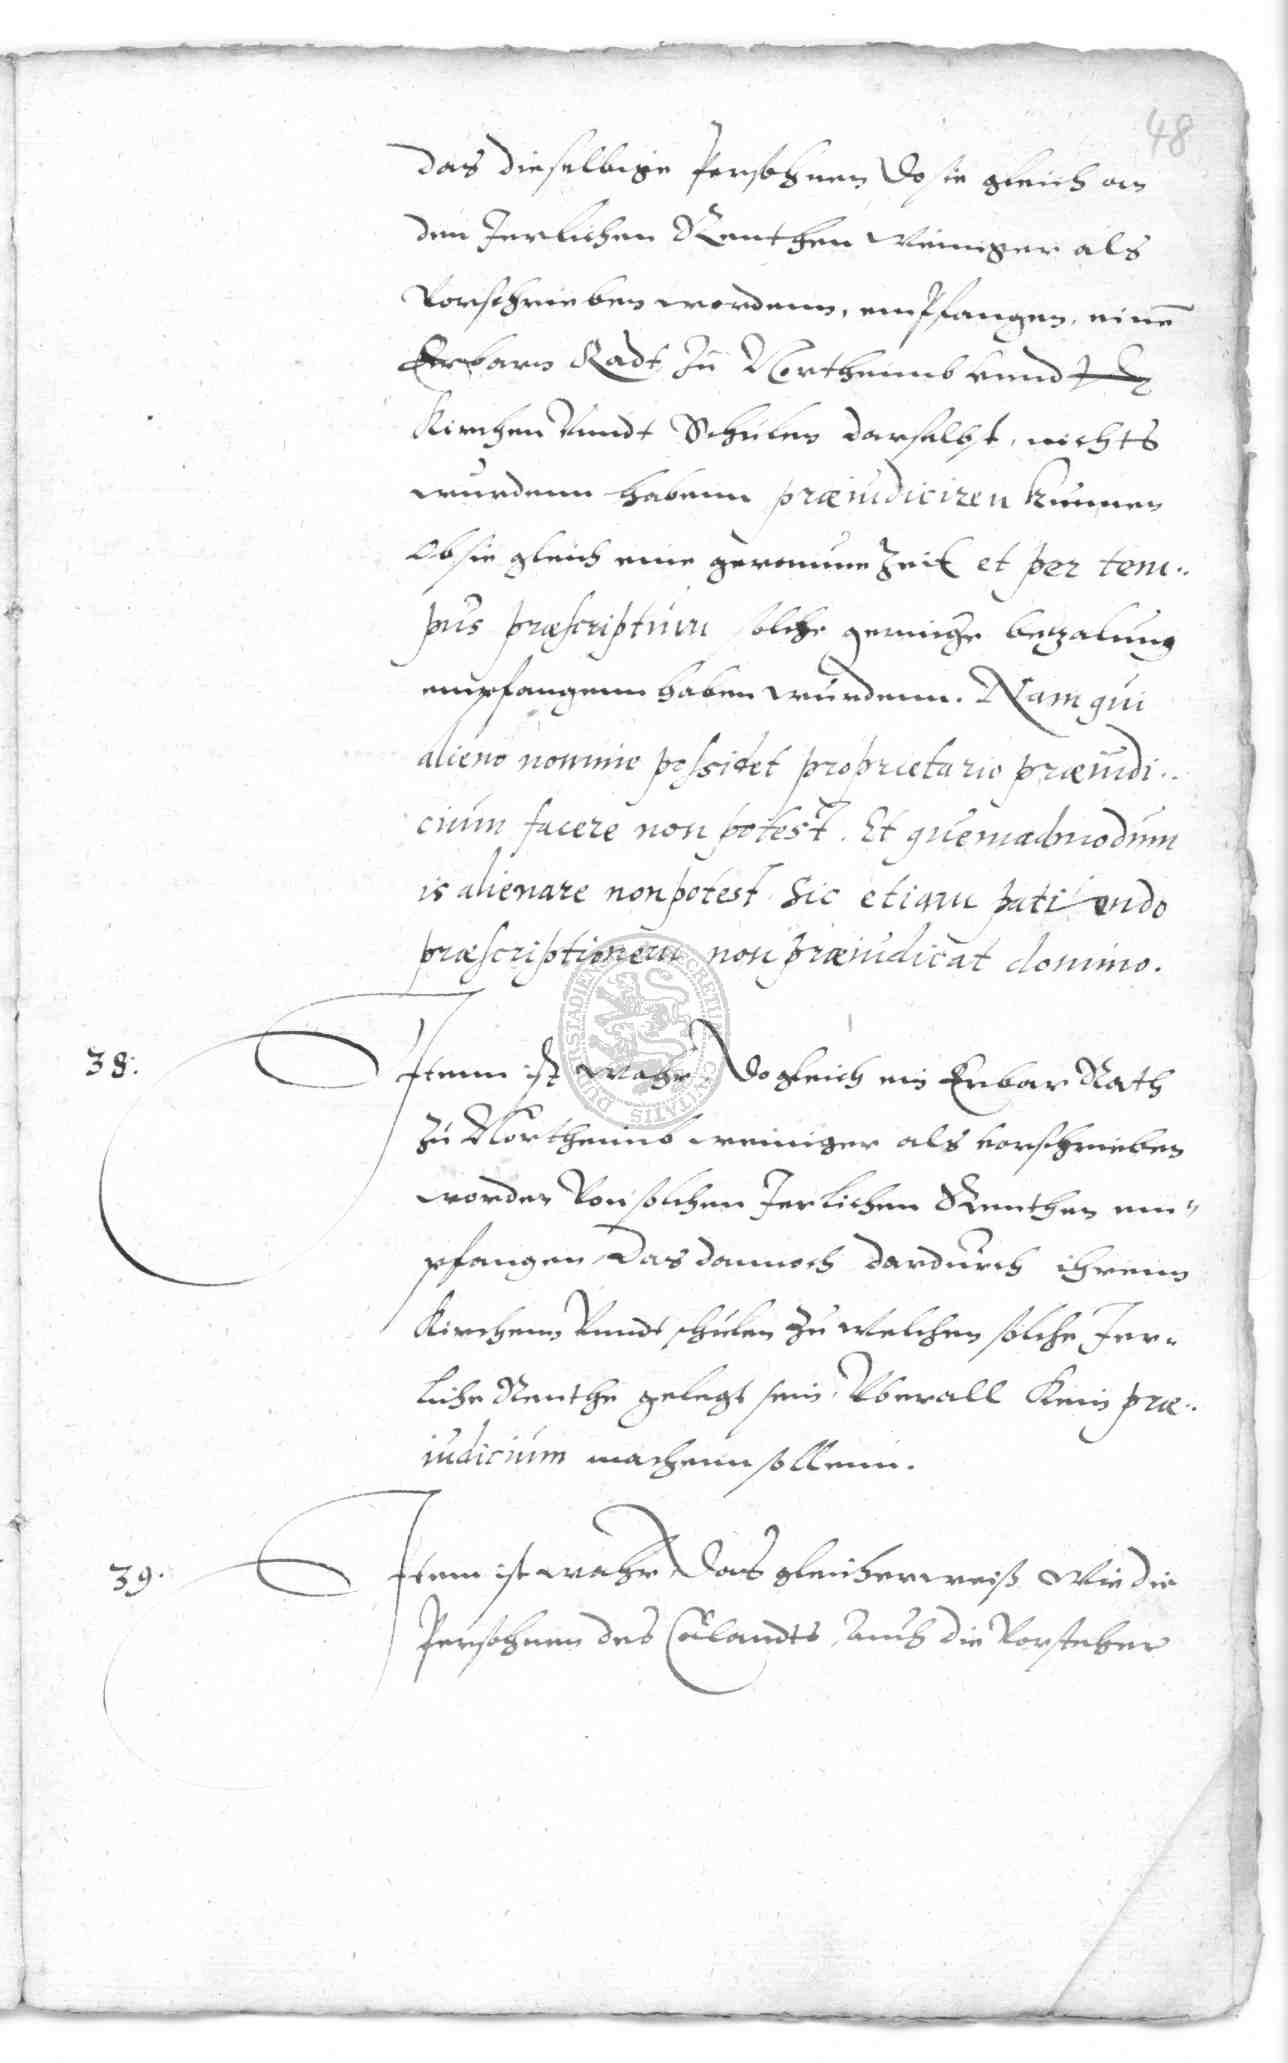 48
das dieselbige Persohnen do sie gleich an
den Jerlichen Renthen weiniger als
Vorschrieben wordenn, empfangen, einē
Erbarn Radt Zu Northeimb vnnd
Kirchen Vnndt Schulen darselbst, nichts
wurdenn habenn præiudiciren kunnen
Ob sie gleich eine geraume Zeit et per tem..
pus præscriptum solche geringe betzalung
empfangenn haben wurdenn. Nam qui
alieno nomine possidet proprietario præiudi..
cium facere non potest. Et quemadmodum
is alienare non potest Sic etiam patiendo
præscriptionem non præiudicat domino.
38. Itemn ist Wahr, Do gleich ein Erbar Rath
Zu Northeimb weiniger als vorschrieben
worden Von solchen Jerlichen Renthen em"
pfangen, Das dannoch dardurch ihrenn
Kirchenn Vnndt schulen Zu welchen solche Jer-
liche Renthe gelegt sein, Vberall Kein præ..
iudicium machenn sollenn.
39. Item ist wahr Das gleicherweiß Wie die
Persohnen des Calandts, Auch die Vorsteher
DUDERSTADIENSIS SECRETUM CIVITATIS